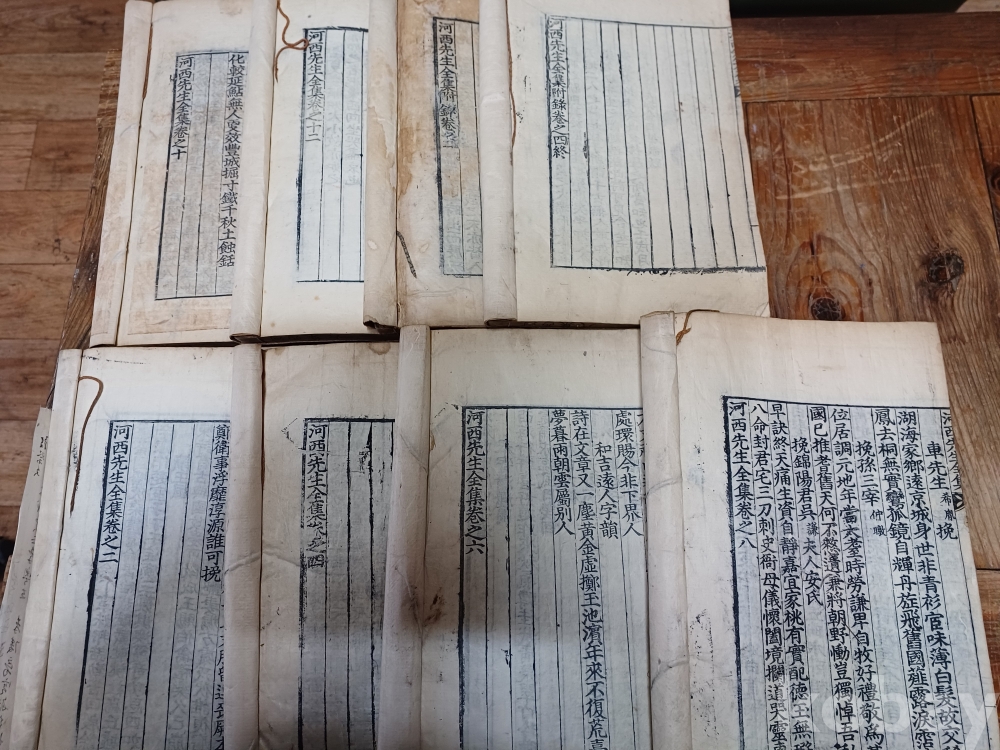 化
無人
豐城掘寸鐵千秋土蝕
河西先生全集卷之十
河西先生全集卷之十二
河西先生全集附錄卷之
河西先生全集附錄卷之四終
鄭衛事浮靡淳源誰可挽
河西先生全集卷之二
河西先生全集卷之四
處環賜今非下界人
和吉遠人字韻
詩在文章又一塵黃金虛擲玉池濱年來不復荒
夢暮雨朝雲屬別人
河西先生全集卷之六
車先生
挽
湖海家鄉遠京城身世非青衫官味薄白髮故父
鳳去桐無實鸞孤鏡自輝丹旌飛舊國薤露淚
挽孫三宰
位居調元地年當大耋時勞謙卑自牧好禮敬爲
國已推耆舊天何不憖遺兼將朝野慟豈獨悼吾
挽錦陽君吳
夫人安氏
早訣終天痛生資自靜嘉宜家桃有實配德玉無
八命封君宅三刀刺史衙母儀懷闔境擱道哭靈
河西先生全集卷之八